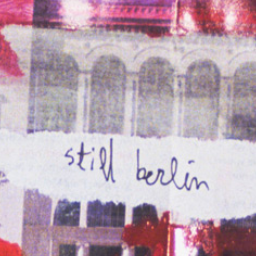 still berlin